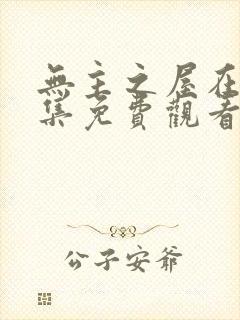 無主之屋在
集免費觀看
公子安爺